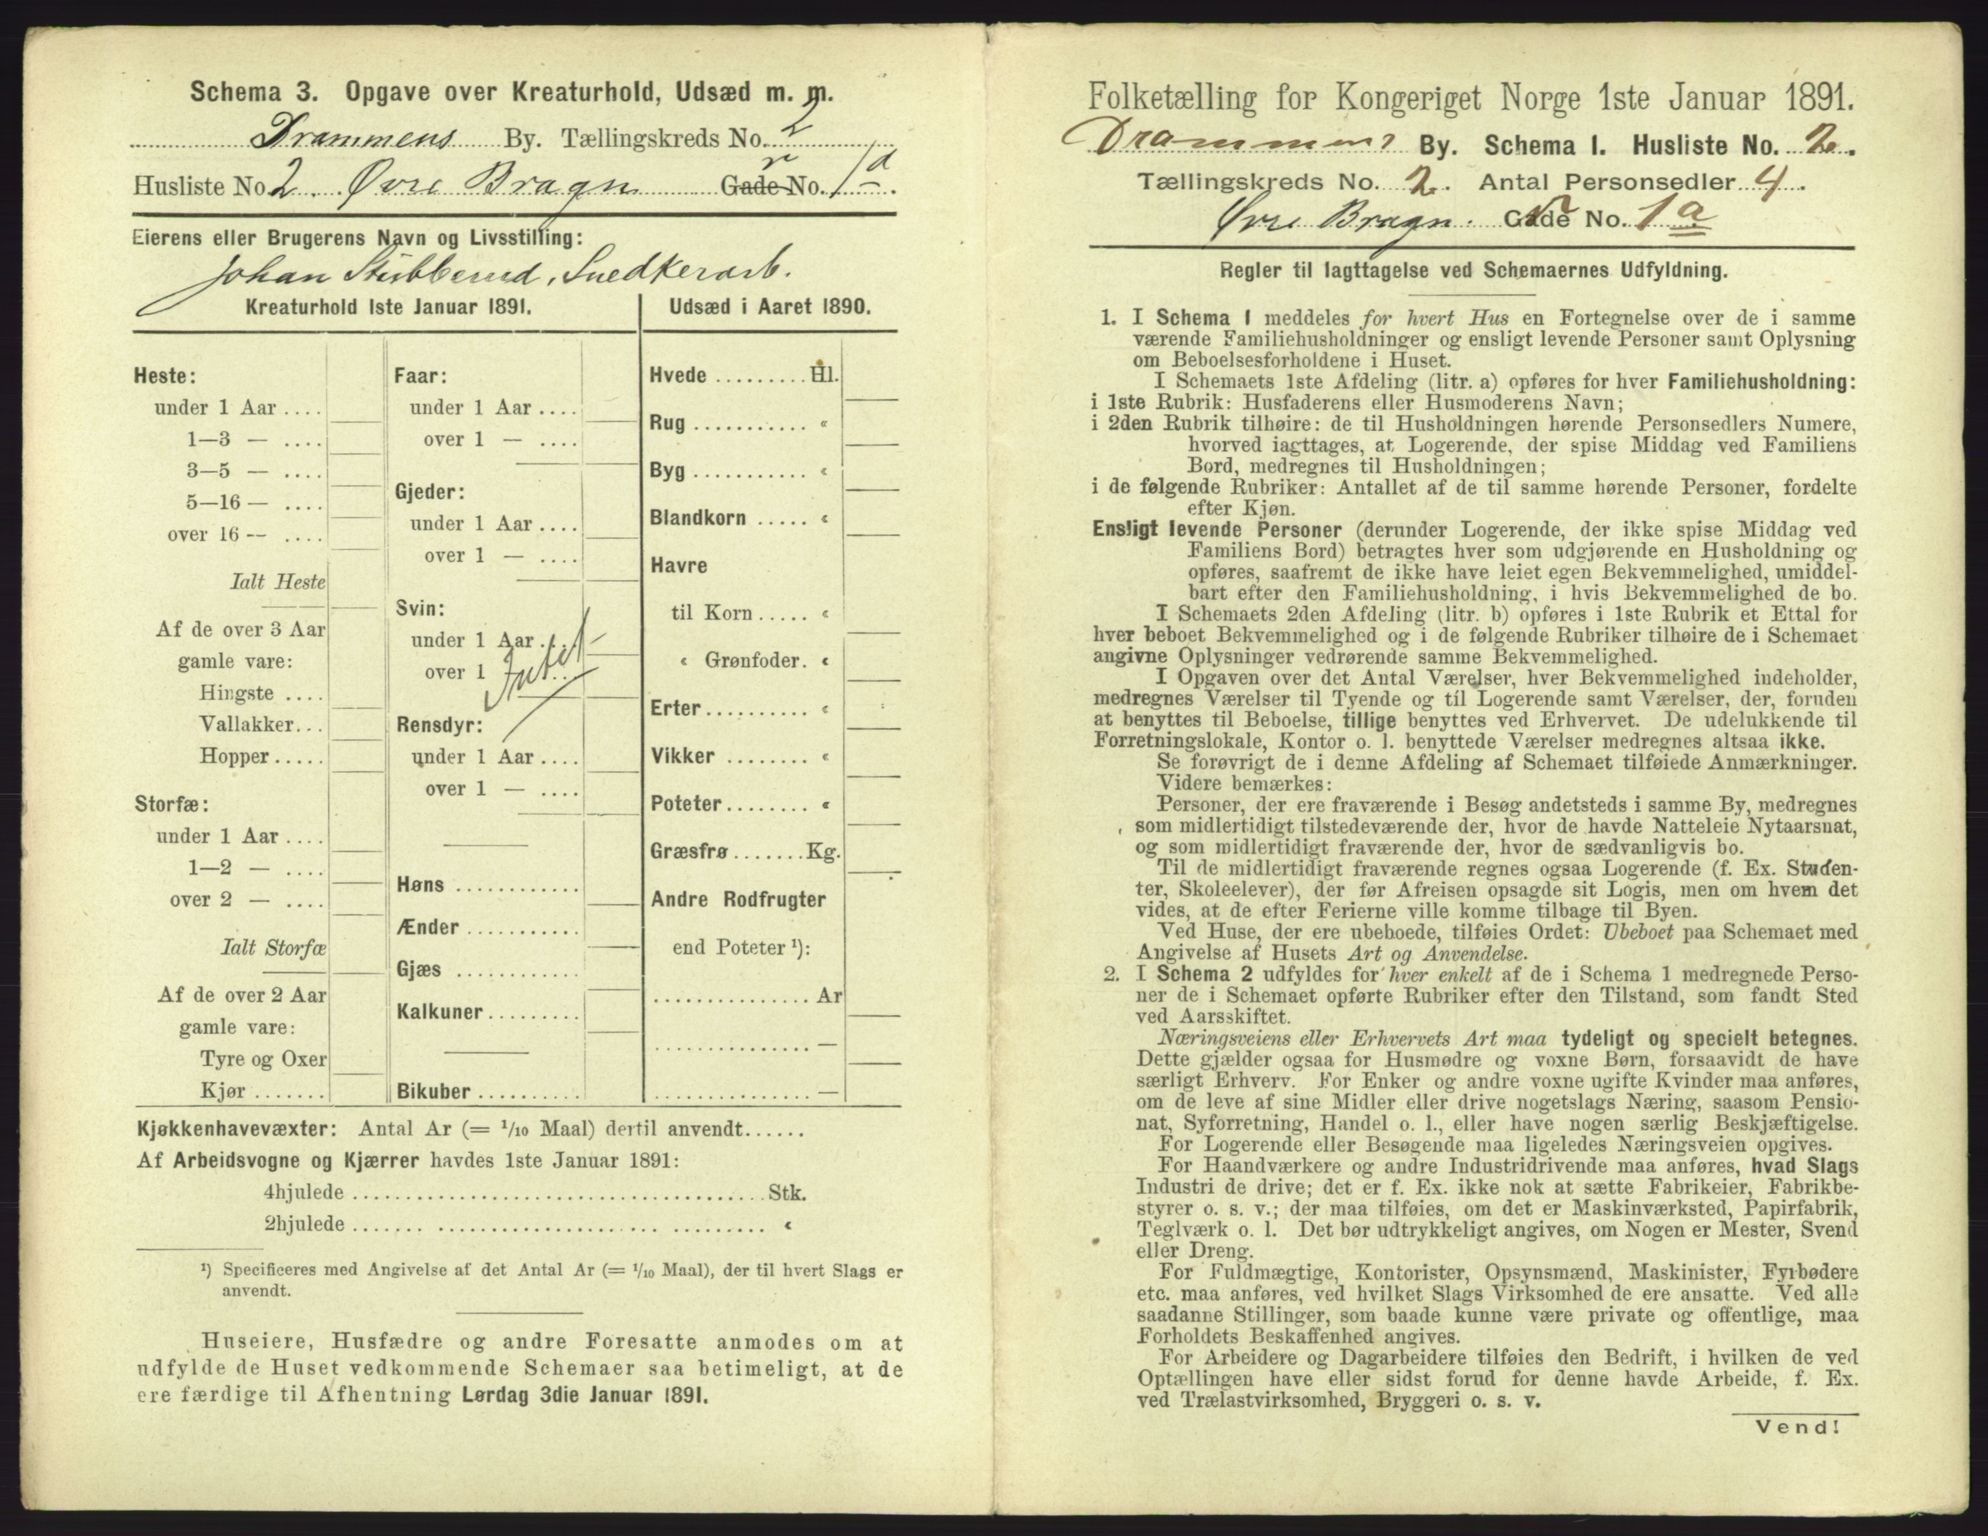 Schema 3. Opgave over Kreaturhold, Udsæd m. m.
Drammens By. Tællingskreds No. 2
Husliste No. 2. Øvre Bragn Gade No. 1a.
Eierens eller Brugerens Navn og Livsstilling:
Johan Stubberud, Snedkerarb.
Kreaturhold 1ste Januar 1891.
Heste:
under 1 Aar ....
1—3 — ....
3—5 — ....
5—16 — ....
over 16 — ....
Ialt Heste
Af de over 3 Aar
gamle vare:
Hingste ....
Vallakker...
Hopper.....
Storfæ:
under 1 Aar ....
1—2 — ....
over 2 — ....
Ialt Storfæ
Af de over 2 Aar
gamle vare:
Tyre og Oxer
Kjør .......
Faar:
under 1 Aar ....
over 1 — ....
Gjeder:
under 1 Aar ....
over 1 — ....
Svin:
under 1 Aar ....
over 1 Intet
Rensdyr:
under 1 Aar ....
over 1 — ....
Høns ............
Ænder ...........
Gjæs ............
Kalkuner.........
Bikuber ..........
Udsæd i Aaret 1890.
Hvede .........Hl.
Rug ........... «
Byg ........... «
Blandkorn ..... «
Havre
til Korn..... «
« Grønfoder. «
Erter.......... «
Vikker ........ «
Poteter........ «
Græsfrø.......Kg.
Andre Rodfrugter
end Poteter ¹):
............... Ar
............... —
............... —
Kjøkkenhavevæxter: Antal Ar (= 1/10 Maal) dertil anvendt......
Af Arbeidsvogne og Kjærrer havdes 1ste Januar 1891:
4hjulede ........................................ Stk.
2hjulede ........................................ «
¹) Specificeres med Angivelse af det Antal Ar (= 1/10 Maal), der til hvert Slags er
anvendt.
Huseiere, Husfædre og andre Foresatte anmodes om at
udfylde de Huset vedkommende Schemaer saa betimeligt, at de
ere færdige til Afhentning Lørdag 3die Januar 1891.
Folketælling for Kongeriget Norge 1ste Januar 1891.
Drammens By. Schema 1. Husliste No. 2.
Tællingskreds No. 2. Antal Personsedler 4.
Øvre Bragn. Gade No. 1a
Regler til Iagttagelse ved Schemaernes Udfyldning.
1. I Schema 1 meddeles for hvert Hus en Fortegnelse over de i samme
værende Familiehusholdninger og ensligt levende Personer samt Oplysning
om Beboelsesforholdene i Huset.
I Schemaets 1ste Afdeling (litr. a) opføres for hver Familiehusholdning:
i 1ste Rubrik: Husfaderens eller Husmoderens Navn;
i 2den Rubrik tilhøire: de til Husholdningen hørende Personsedlers Numere,
hvorved iagttages, at Logerende, der spise Middag ved Familiens
Bord, medregnes til Husholdningen;
i de følgende Rubriker: Antallet af de til samme hørende Personer, fordelte
efter Kjøn.
Ensligt levende Personer (derunder Logerende, der ikke spise Middag ved
Familiens Bord) betragtes hver som udgjørende en Husholdning og
opføres, saafremt de ikke have leiet egen Bekvemmelighed, umiddel-
bart efter den Familiehusholdning, i hvis Bekvemmelighed de bo.
I Schemaets 2den Afdeling (litr. b) opføres i 1ste Rubrik et Ettal for
hver beboet Bekvemmelighed og i de følgende Rubriker tilhøire de i Schemaet
angivne Oplysninger vedrørende samme Bekvemmelighed.
I Opgaven over det Antal Værelser, hver Bekvemmelighed indeholder,
medregnes Værelser til Tyende og til Logerende samt Værelser, der, foruden
at benyttes til Beboelse, tillige benyttes ved Erhvervet. De udelukkende til
Forretningslokale, Kontor o. l. benyttede Værelser medregnes altsaa ikke.
Se forøvrigt de i denne Afdeling af Schemaet tilføiede Anmærkninger.
Videre bemærkes:
Personer, der ere fraværende i Besøg andetsteds i samme By, medregnes
som midlertidigt tilstedeværende der, hvor de havde Natteleie Nytaarsnat,
og som midlertidigt fraværende der, hvor de sædvanligvis bo.
Til de midlertidigt fraværende regnes ogsaa Logerende (f. Ex. Studen-
ter, Skoleelever), der før Afreisen opsagde sit Logis, men om hvem det
vides, at de efter Ferierne ville komme tilbage til Byen.
Ved Huse, der ere ubeboede, tilføies Ordet: Ubeboet paa Schemaet med
Angivelse af Husets Art og Anvendelse.
2. I Schema 2 udfyldes for hver enkelt af de i Schema 1 medregnede Perso-
ner de i Schemaet opførte Rubriker efter den Tilstand, som fandt Sted
ved Aarsskiftet.
Næringsveiens eller Erhvervets Art maa tydeligt og specielt betegnes.
Dette gjælder ogsaa for Husmødre og voxne Børn, forsaavidt de have
særligt Erhverv. For Enker og andre voxne ugifte Kvinder maa anføres,
om de leve af sine Midler eller drive nogetslags Næring, saasom Pensio-
nat, Syforretning, Handel o. l., eller have nogen særlig Beskjæftigelse.
For Logerende eller Besøgende maa ligeledes Næringsveien opgives.
For Haandværkere og andre Industridrivende maa anføres, hvad Slags
Industri de drive; det er f. Ex. ikke nok at sætte Fabrikeier, Fabrikbe-
styrer o. s. v.; der maa tilføies, om det er Maskinværksted, Papirfabrik,
Teglværk o. l. Det bør udtrykkeligt angives, om Nogen er Mester, Svend
eller Dreng.
For Fuldmægtige, Kontorister, Opsynsmænd, Maskinister, Fyrbødere
etc. maa anføres, ved hvilket Slags Virksomhed de ere ansatte. Ved alle
saadanne Stillinger, som baade kunne være private og offentlige, maa
Forholdets Beskaffenhed angives.
For Arbeidere og Dagarbeidere tilføies den Bedrift, i hvilken de ved
Optællingen have eller sidst forud for denne havde Arbeide, f. Ex.
ved Trælastvirksomhed, Bryggeri o. s. v.
Vend!